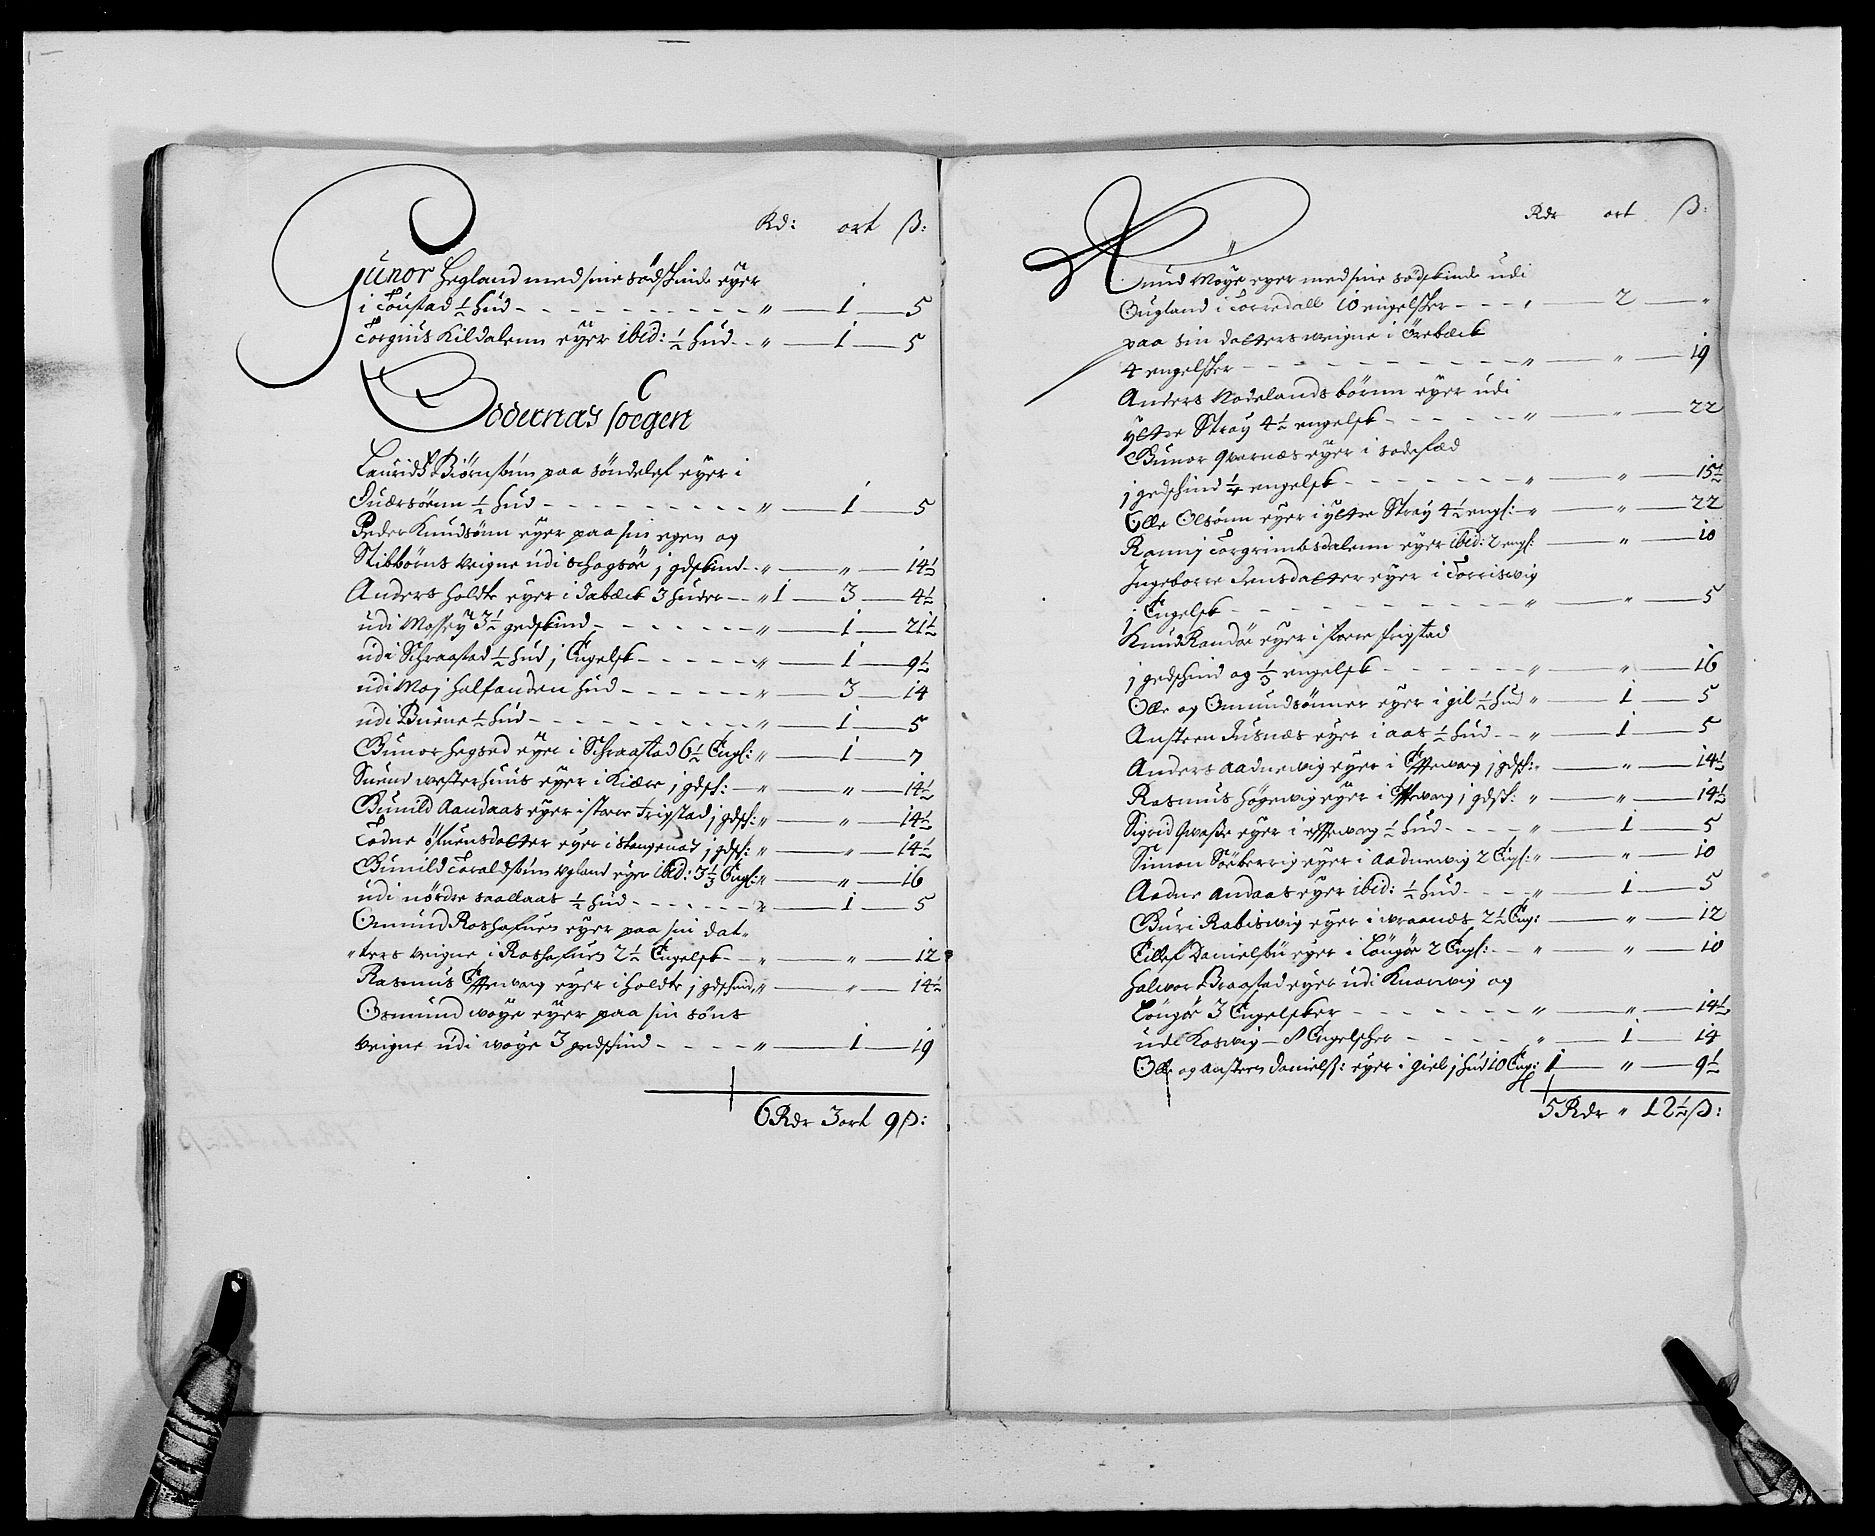 Rd: ort ß:
Gunor Hegland med sine södskinde eyer
i Toustad ½ hud - - - " — 1 — 5
Torgius Kildalenn eyer ibid: ½ hud - - " — 1 — 5
Oddernas soegen
Lauridtz Biörnsøn paa söndeles eyer i
Quærsönn ½ hud - - - " — 1 — 5
Peder Knudsönn eyer paa sin egen og
Stibbörns veigne udi Schagsöe j gdskind - " — " — 14½
Anders Holdte eyer i Dabæck 3 huder — " 1 — 3 — 4½
udi Mossey 3½ gedskind - - - " — 1 — 21½
udi Schraastad ½ hud j Engelsk - - - " — 1 — 9½
udi Moj halfanden hud - - - " — 3 — 14
udi Buene ½ hud - - - " — 1 — 5
Gunor Hegsed eyer i Schraastad 6½ Engl: " — 1 — 7
Suend westerhuus eyer i Kiære j gdsk: — " — " — 14½
Gunild Aandaas eyer i store Frigstad j gdsk: " — " — 14½
Todne östuensdatter eyer i Stangenas j gdsk: " — " — 14½
Gunild Toraldsdun ugland eyer ibid: 3⅓ Engl: " — " — 16
udi nördre Saallaas ½ hud - - - " — 1 — 5
Omund Roshafuen eyer paa sin dat-
ters veigne i Roshafuen 2½ Engelsk - " — " — 12
Rasmus Effewang eyer i holdte j gdskind " — " — 14½
Osmund woye eyer paa sin söns
veigne udi woye 3 gedskind - - - " — 1 — 19
6 Rdr 3 ort 9 ß:
Rdr ort ß:
Omund Moye eyer med sine sodskinde udi
Ougland i Torredall 10 engelsker - - - " — 2 — "
paa sin datters veigne i Örebæck
4 engelsker - - - " — " — 19
Anders Nodelands börnn eyer udi
yttre Stray 4½ engelsk - - - " — " — 22
Gunor qvarnæs eyer i
j gedskind ¼ engelsk - - - " — " — 15½
Olle Olsönn eyer i yttre Stray 4½ engl: " — " — 22
Ronnj Torgrimbsdalenn eyer ibid: 2 engl: — " — 10
Ingeborre Jensdatter eyer i Torriswig
j Engelsk - - - " — " — 5
Knud Randöe eyer i store frigstad
j gedskind og ⅓ engelsk - - - " — " — 16
Olle og Omundsönner eyer i gil ½ hud " — 1 — 5
Ansteen Jusnæs eyer i aas ½ hud - - " — 1 — 5
Anders Aadnewig eyer i Effewang j gdsk: " — " — 14½
Rasmus Högewig eyer i Effewang j gdsk: " — " — 14½
Sigrid qvaase eyer i effewang ½ hud - - - " — 1 — 5
Simon Söeberrig eyer i Aadnewig 2 Engl: " — " — 10
Aadne Andaas eyer ibid: ½ hud - - - " — 1 — 5
Guri Rabiswig eyer i wraanæs 2½ Eng: — " — 12
Eillef Danielsön eyer i Töngöe 2 Engl: - " — " — 10
Halwor Braastad eyer udi Knarwig og
Töngöe 3 Engelsker - - - " — " — 14½
udi Koswig — 8 Engelscher - - - " — 1 — 14
Olle og Ansteen Danielss: eyer i Giel j hud 10 Eng: 1 — " — 9½
5 Rdr " 12½ ß: